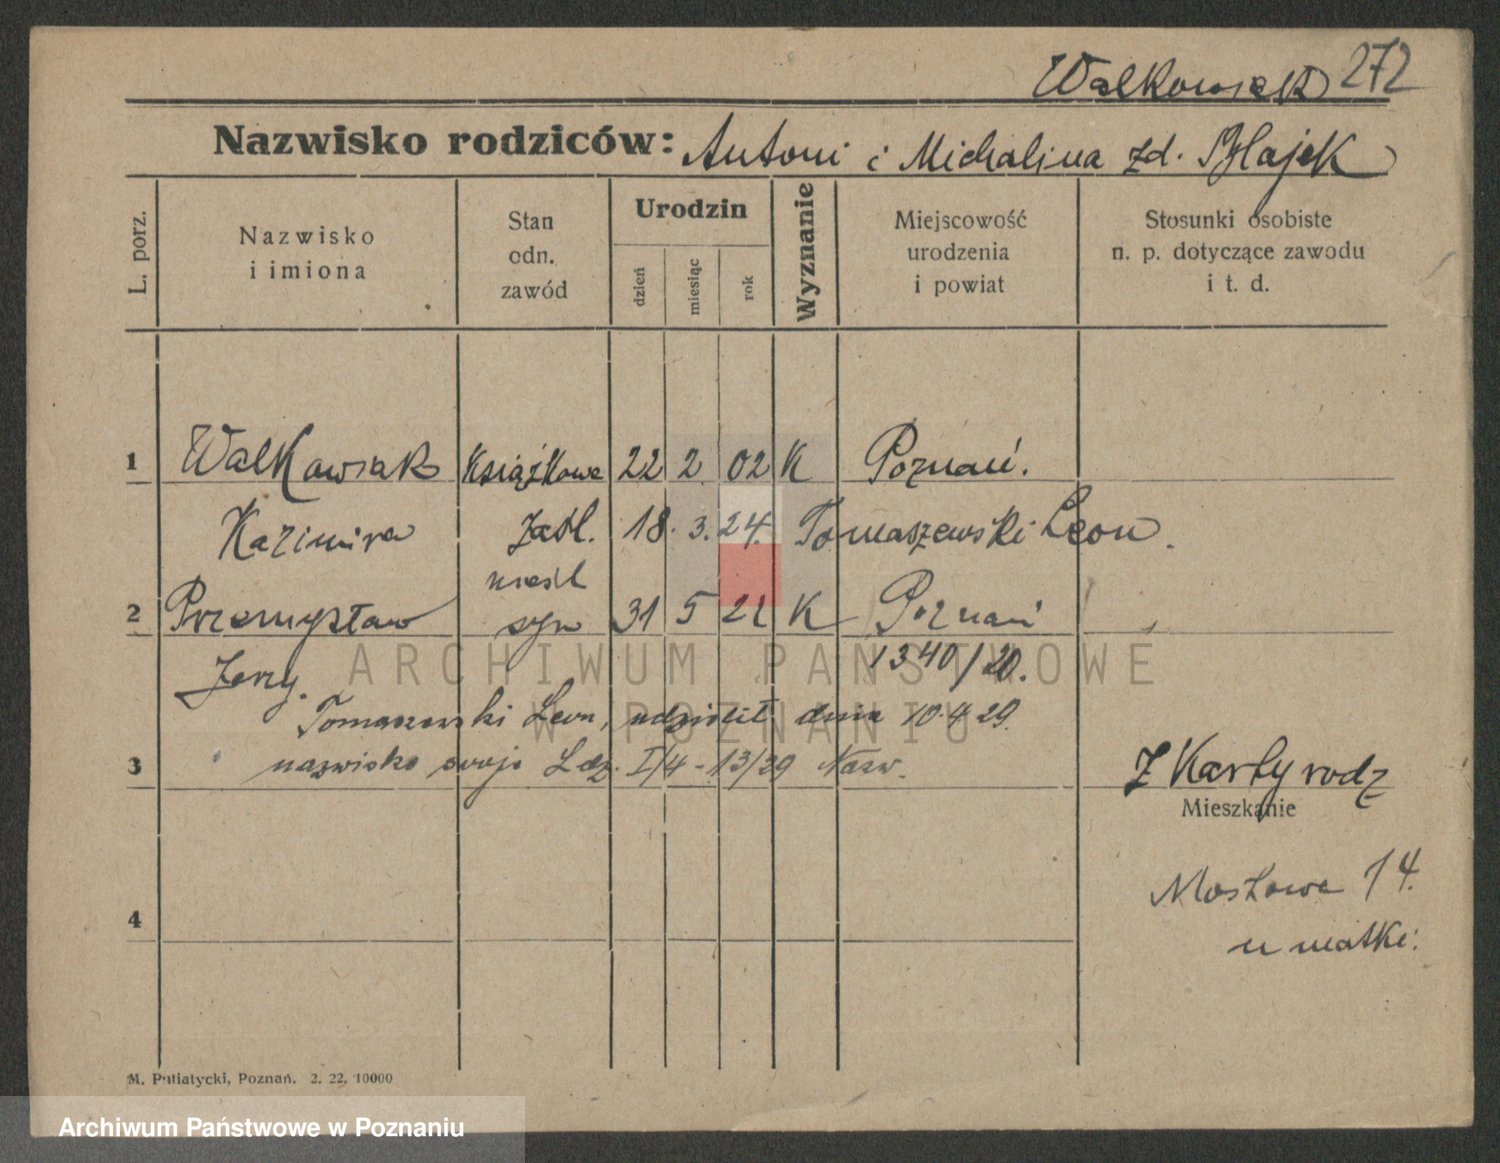 Walkowiak 272
Nazwisko rodziców: Antoni i Michalina zd.
L. porz.
Nazwisko
i imiona
Stan
odn.
zawód
Urodzin
dzień
miesiąc
rok
Wyznanie
Miejscowość
urodzenia
i powiat
Stosunki osobiste
n. p. dotyczące zawodu
i t. d.
1 Walkowiak Książkowa 22 2 02 K Poznań.
Kazimira zaśl. 18. 3. 24. Tomaszewski Leon.
nieśl
2 Przemysław syn 31 5 K Poznań
Jerzy. 1340/20.
Tomaszewski Leon, udzielił dnia 10.4.29.
3 nazwisko swoje Ldz. I/4-13/29 Nazw.
Z Karty rodz
Mieszkanie
Mostowa 14.
u matki.
4
M. Putiatycki, Poznań, 2. 22. 10000
ARCHIWUM PAŃSTWOWE
W POZNANIU
Archiwum Państwowe w Poznaniu